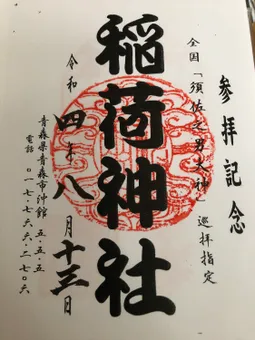 参拝記念
全国「須佐之男大神」巡拝指定
稲荷神社
令和四年八月十三日
青森県青森市沖館五・五・五
電話〇一七・七六六・二七〇六